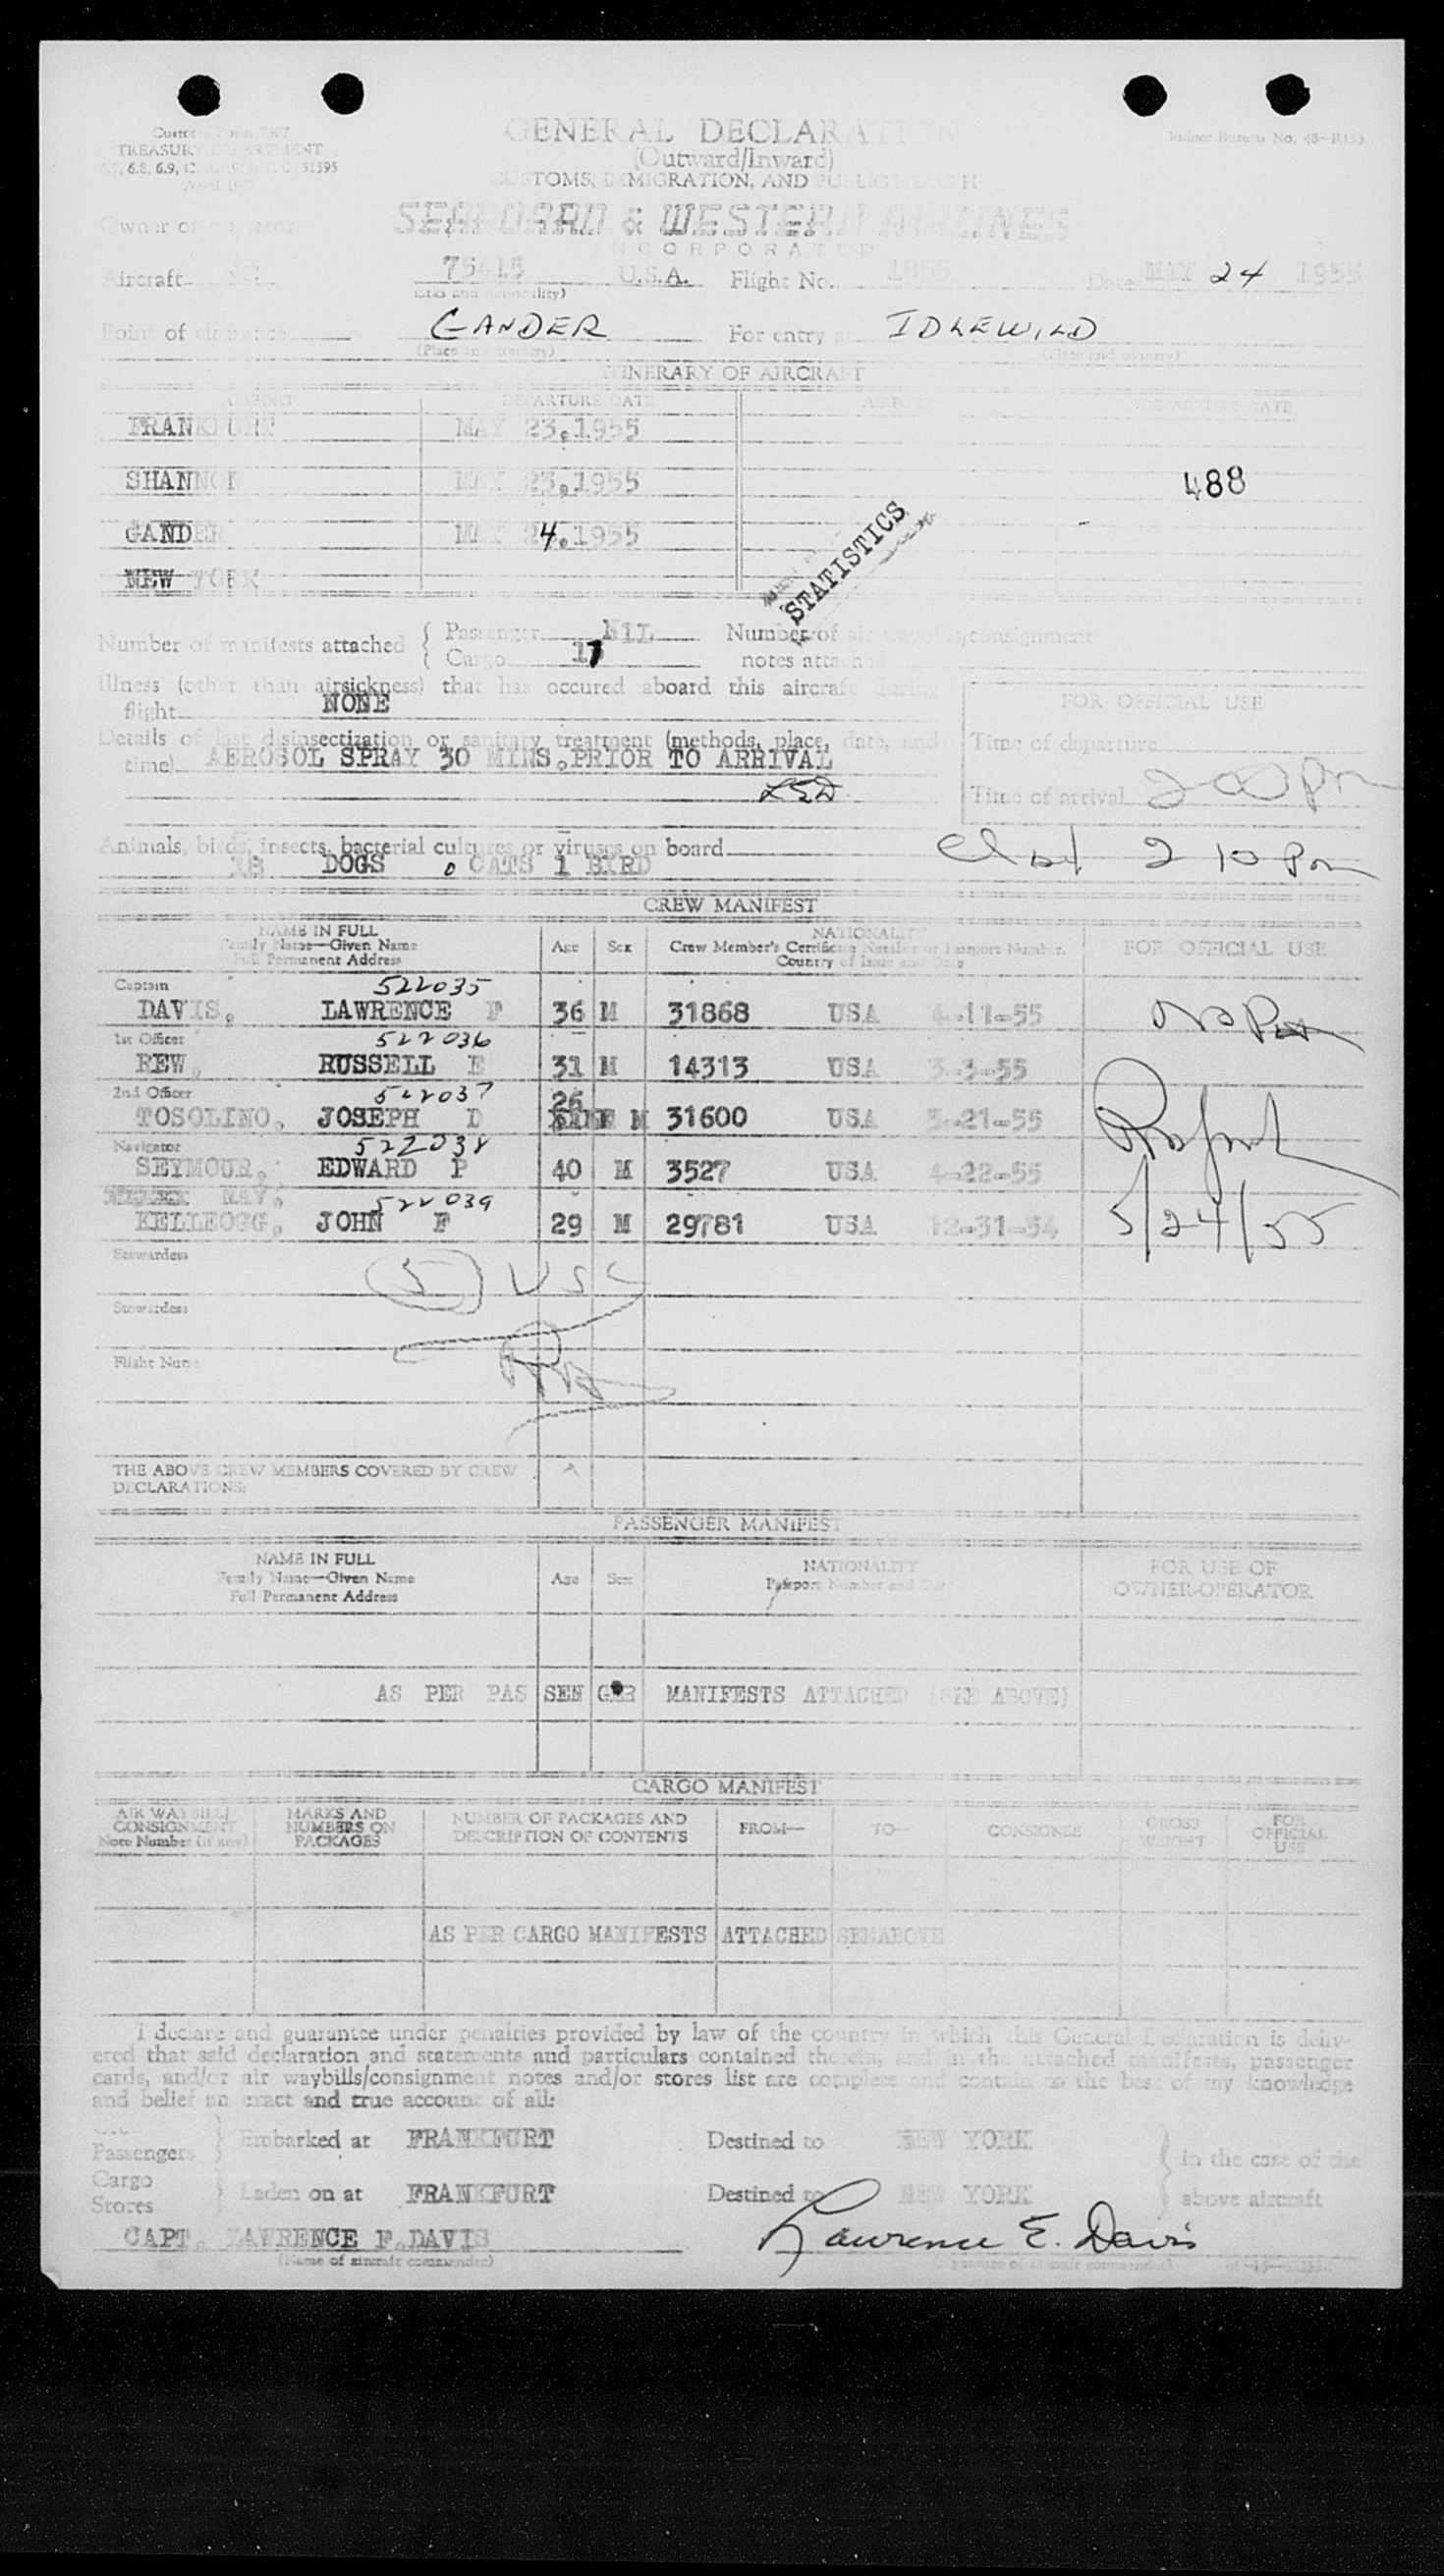 TREASURY DEPARTMENT
GENERAL DECLARATION
(Outward/Inward)
CUSTOMS, IMMIGRATION, AND PUBLIC HEALTH
SEABOARD & WESTERN AIRLINES
INCORPORATED
Owner or operator
Aircraft 75415 U.S.A. Flight No. Date MAY 24 1955
Point of clearance GANDER For entry at IDLEWILD
ITINERARY OF AIRCRAFT
AIRPORT DEPARTURE DATE AIRPORT DEPARTURE DATE
FRANKFURT MAY 23,1955
SHANNON MAY 23,1955
488
GANDER MAY 24,1955
NEW YORK
STATISTICS
Number of manifests attached { Passenger NIL
Cargo
Number of air waybills/consignment notes attached
Illness (other than airsickness) that has occured aboard this aircraft during
flight NONE
FOR OFFICIAL USE
Details of last disinsectization or sanitary treatment (methods, place, date, and
time) AEROSOL SPRAY 30 MINS.PRIOR TO ARRIVAL
Time of departure
Time of arrival 200 pm
Animals, birds, insects, bacterial cultures or viruses on board
DOGS CATS 1 BIRD
2 10 Pm
CREW MANIFEST
NAME IN FULL
Family Name—Given Name
Full Permanent Address
Age Sex
NATIONALITY
Crew Member's Certificate Number or Passport Number.
Country of Issue and Date
FOR OFFICIAL USE
Captain 522035
DAVIS, LAWRENCE F 36 M 31868 USA 4-11-55
1st Officer 522036
REW, RUSSELL E 31 M 14313 USA 3-3-55
2nd Officer 522037 26
TOSOLINO, JOSEPH D M 31600 USA 3-21-55
Navigator 522038
SEYMOUR, EDWARD P 40 M 3527 USA 4-22-55
NAV. 522039
KELLEOGG, JOHN F 29 M 29781 USA 12-31-54
5/24/55
Stewardess
(5) USC
Stewardess
Flight Nurse
THE ABOVE CREW MEMBERS COVERED BY CREW
DECLARATIONS:
PASSENGER MANIFEST
NAME IN FULL
Family Name—Given Name
Full Permanent Address
Age Sex
NATIONALITY
Passport Number and Date
FOR USE OF
OWNER-OPERATOR
AS PER PASSENGER MANIFESTS ATTACHED (SEE ABOVE)
CARGO MANIFEST
AIR WAYBILL/
CONSIGNMENT
Note Number (if any)
MARKS AND
NUMBERS ON
PACKAGES
NUMBER OF PACKAGES AND
DESCRIPTION OF CONTENTS
FROM— TO— CONSIGNEE
GROSS
WEIGHT
FOR
OFFICIAL
USE
AS PER CARGO MANIFESTS ATTACHED SEE ABOVE
I declare and guarantee under penalties provided by law of the country in which this General Declaration is deliv-
ered that said declaration and statements and particulars contained therein, and in the attached manifests, passenger
cards, and/or air waybills/consignment notes and/or stores list are complete and contain to the best of my knowledge
and belief an exact and true account of all:
Passengers } Embarked at FRANKFURT Destined to NEW YORK
} in the case of the
above aircraft
Cargo
Stores } Laden on at FRANKFURT Destined to NEW YORK
CAPT. LAWRENCE F.DAVIS Lawrence E. Davis
(Name of aircraft commander)